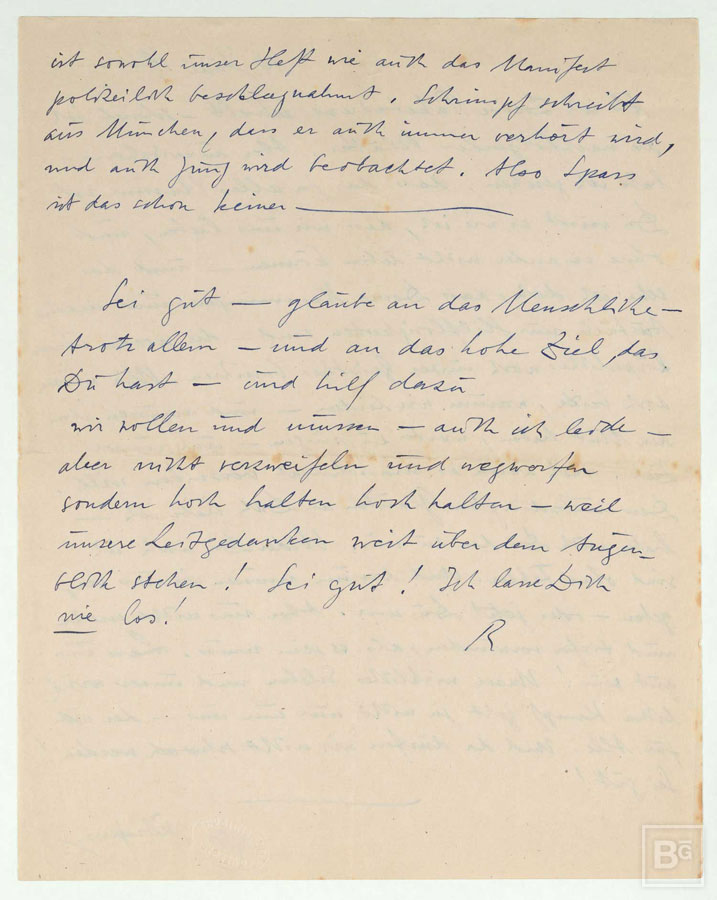 ist sowohl unser Heft wie auch das Manifest
polizeilich beschlagnahmt. Schrimpf schreibt
aus München, dass er auch immer verhört wird,
und auch Jung wird beobachtet. Also Spass
ist das schon keiner —
Sei gut — glaube an das Menschliche —
trotz allem — und an das hohe Ziel, das
Du hast — und hilf dazu
wir wollen und müssen — auch ich leide —
aber nicht verzweifeln und wegworfen
sondern hoch halten hoch halten — weil
unsere Leitgedanken weit über dem Augen-
blick stehen! Sei gut! Ich lasse Dich
nie los!
R
BG